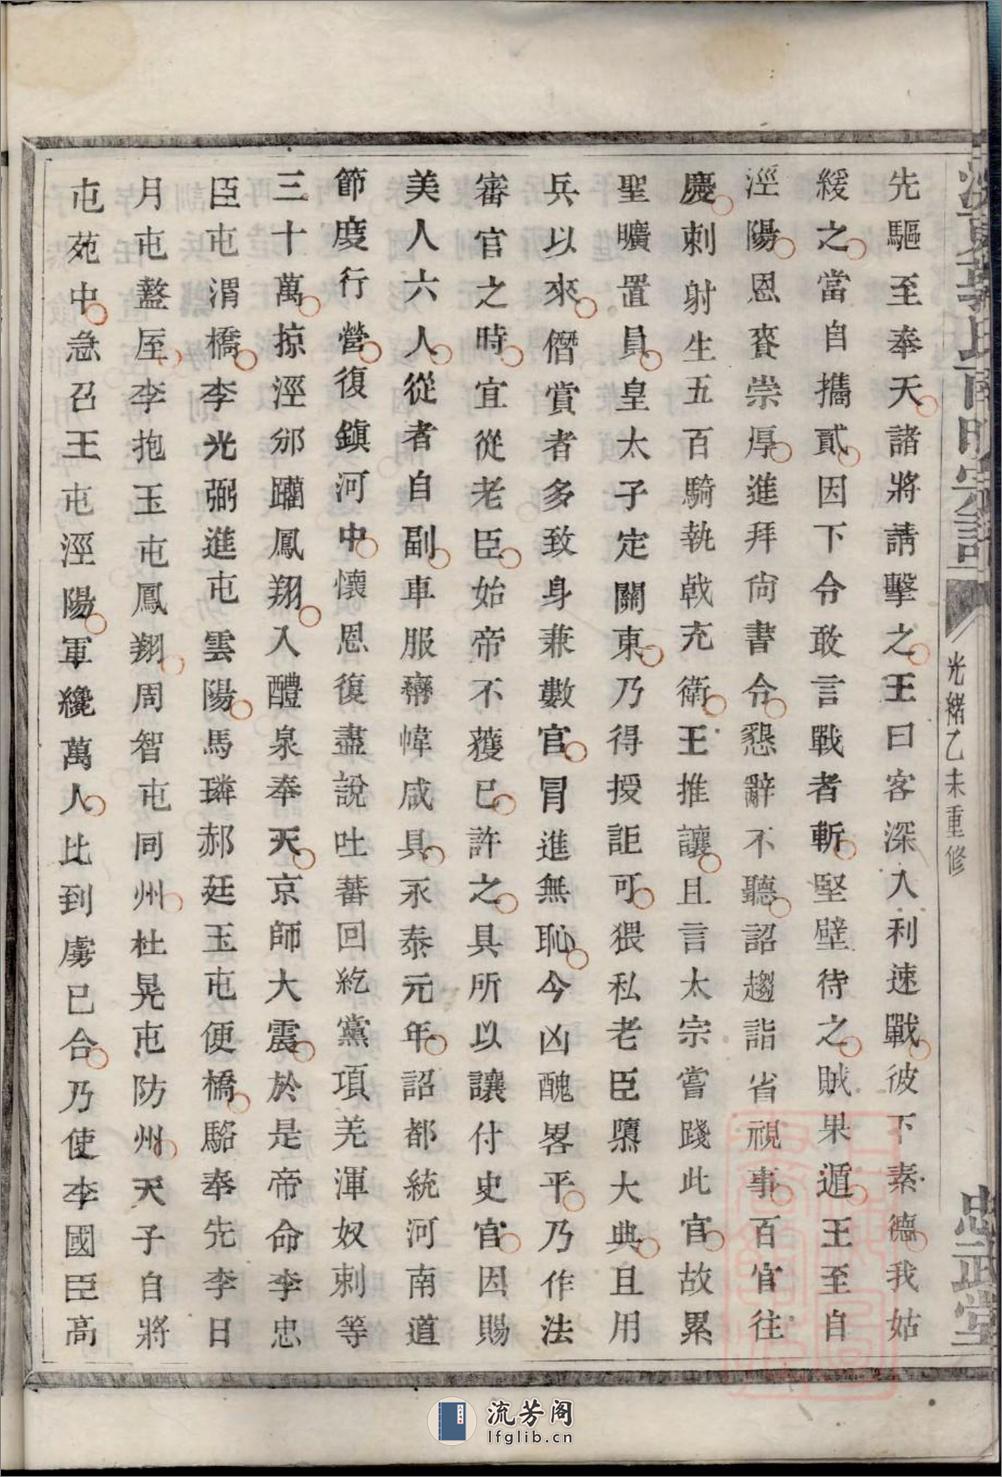 光緒乙未重修
忠武堂
先驅至奉天諸將請擊之王曰客深入利速戰彼下素德我姑
緩之當自攜貳因下令敢言戰者斬堅壁待之賊果遁王至自
涇陽恩賚崇厚進拜尙書令懇辭不聽詔趨詣省視事百官往
慶刺射生五百騎執戟充衛王推讓且言太宗嘗踐此官故累
聖曠置員皇太子定關東乃得授詎可猥私老臣隳大典且用
兵以來僭賞者多致身兼數官冒進無恥今凶醜畧平乃作法
審官之時宜從老臣始帝不獲已許之具所以讓付史官因賜
美人六人從者自副車服帟幃咸具永泰元年詔都統河南道
節度行營復鎮河中懷恩復盡說吐蕃回紇黨項羌渾奴剌等
三十萬掠涇邠躪鳳翔入醴泉奉天京師大震於是帝命李忠
臣屯渭橋李光弼進屯雲陽馬璘郝廷玉屯便橋駱奉先李日
月屯盩厔李抱玉屯鳳翔周智屯同州杜晃屯防州天子自將
屯苑中急召王屯涇陽軍纔萬人比到虜已合乃使李國臣高
流芳阁
lfglib.cn